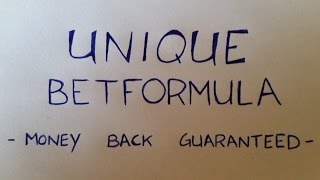 UNIQUE
BETFORMULA
- MONEY BACK GUARANTEED -